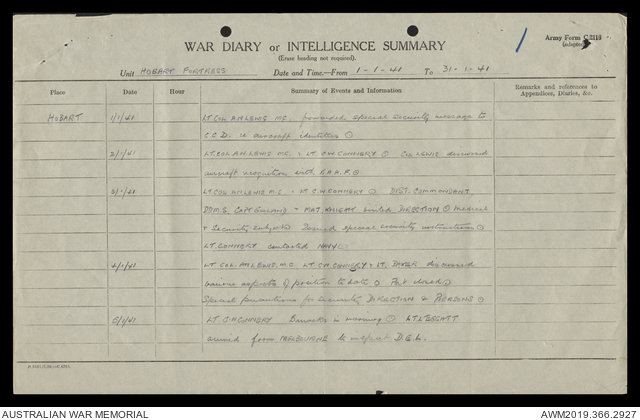 1
Army Form C.2118
(adapted)
WAR DIARY or INTELLIGENCE SUMMARY
(Erase heading not required).
Unit HOBART FORTRESS Date and Time.—From 1-1-41 To 31-1-41
Place Date Hour Summary of Events and Information Remarks and references to Appendices, Diaries, &c.
HOBART 1/1/41 LT. COL. A.H. LEWIS M.C. forwarded special security message to
C.C.D. re aircraft identities
2/1/41 LT. COL. A.H. LEWIS M.C. & LT. C.W. CONNERY Col LEWIS discussed
aircraft recognition with R.A.A.F.
3/1/41 LT. COL. A.H. LEWIS M.C. & LT. C.W. CONNERY DIST. COMMANDANT,
DDMS, CAPT & MAJ KNIGHT visited DIRECTION medical
& security subjects special security instructions
LT. CONNERY contacted NAVY
4/1/41 LT. COL. A.H. LEWIS M.C. LT. C.W. CONNERY & LT. discussed
various aspects of position to date Port closed
Special precautions for security DIRECTION &
5/1/41 LT. C.W. CONNERY in morning LT. LEGGATT
arrived from MELBOURNE to inspect D.G.L.
AUSTRALIAN WAR MEMORIAL
AWM2019.366.2927